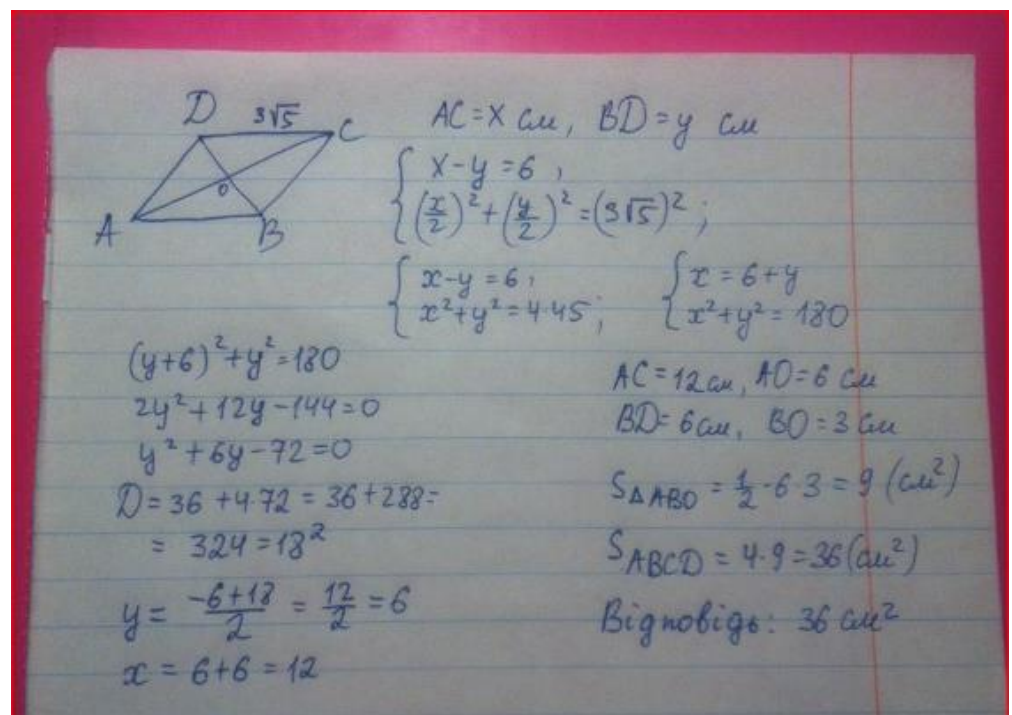 D 3√5 C
A O B
AC = x см, BD = y см
{ x - y = 6 ,
(x/2)² + (y/2)² = (3√5)² ;
{ x - y = 6 ,
x² + y² = 4·45 ;
{ x = 6 + y
x² + y² = 180
(y+6)² + y² = 180
2y² + 12y - 144 = 0
y² + 6y - 72 = 0
D = 36 + 4·72 = 36 + 288 =
= 324 = 18²
y = (-6+18)/2 = 12/2 = 6
x = 6 + 6 = 12
AC = 12 см, AO = 6 см
BD = 6 см, BO = 3 см
S△ABO = 1/2 · 6 · 3 = 9 (см²)
SABCD = 4 · 9 = 36 (см²)
Відповідь: 36 см²